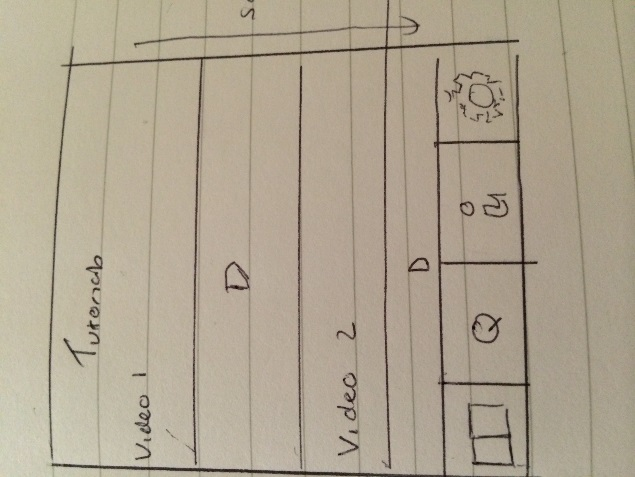 Tutorials
Video 1
D
Video 2
D